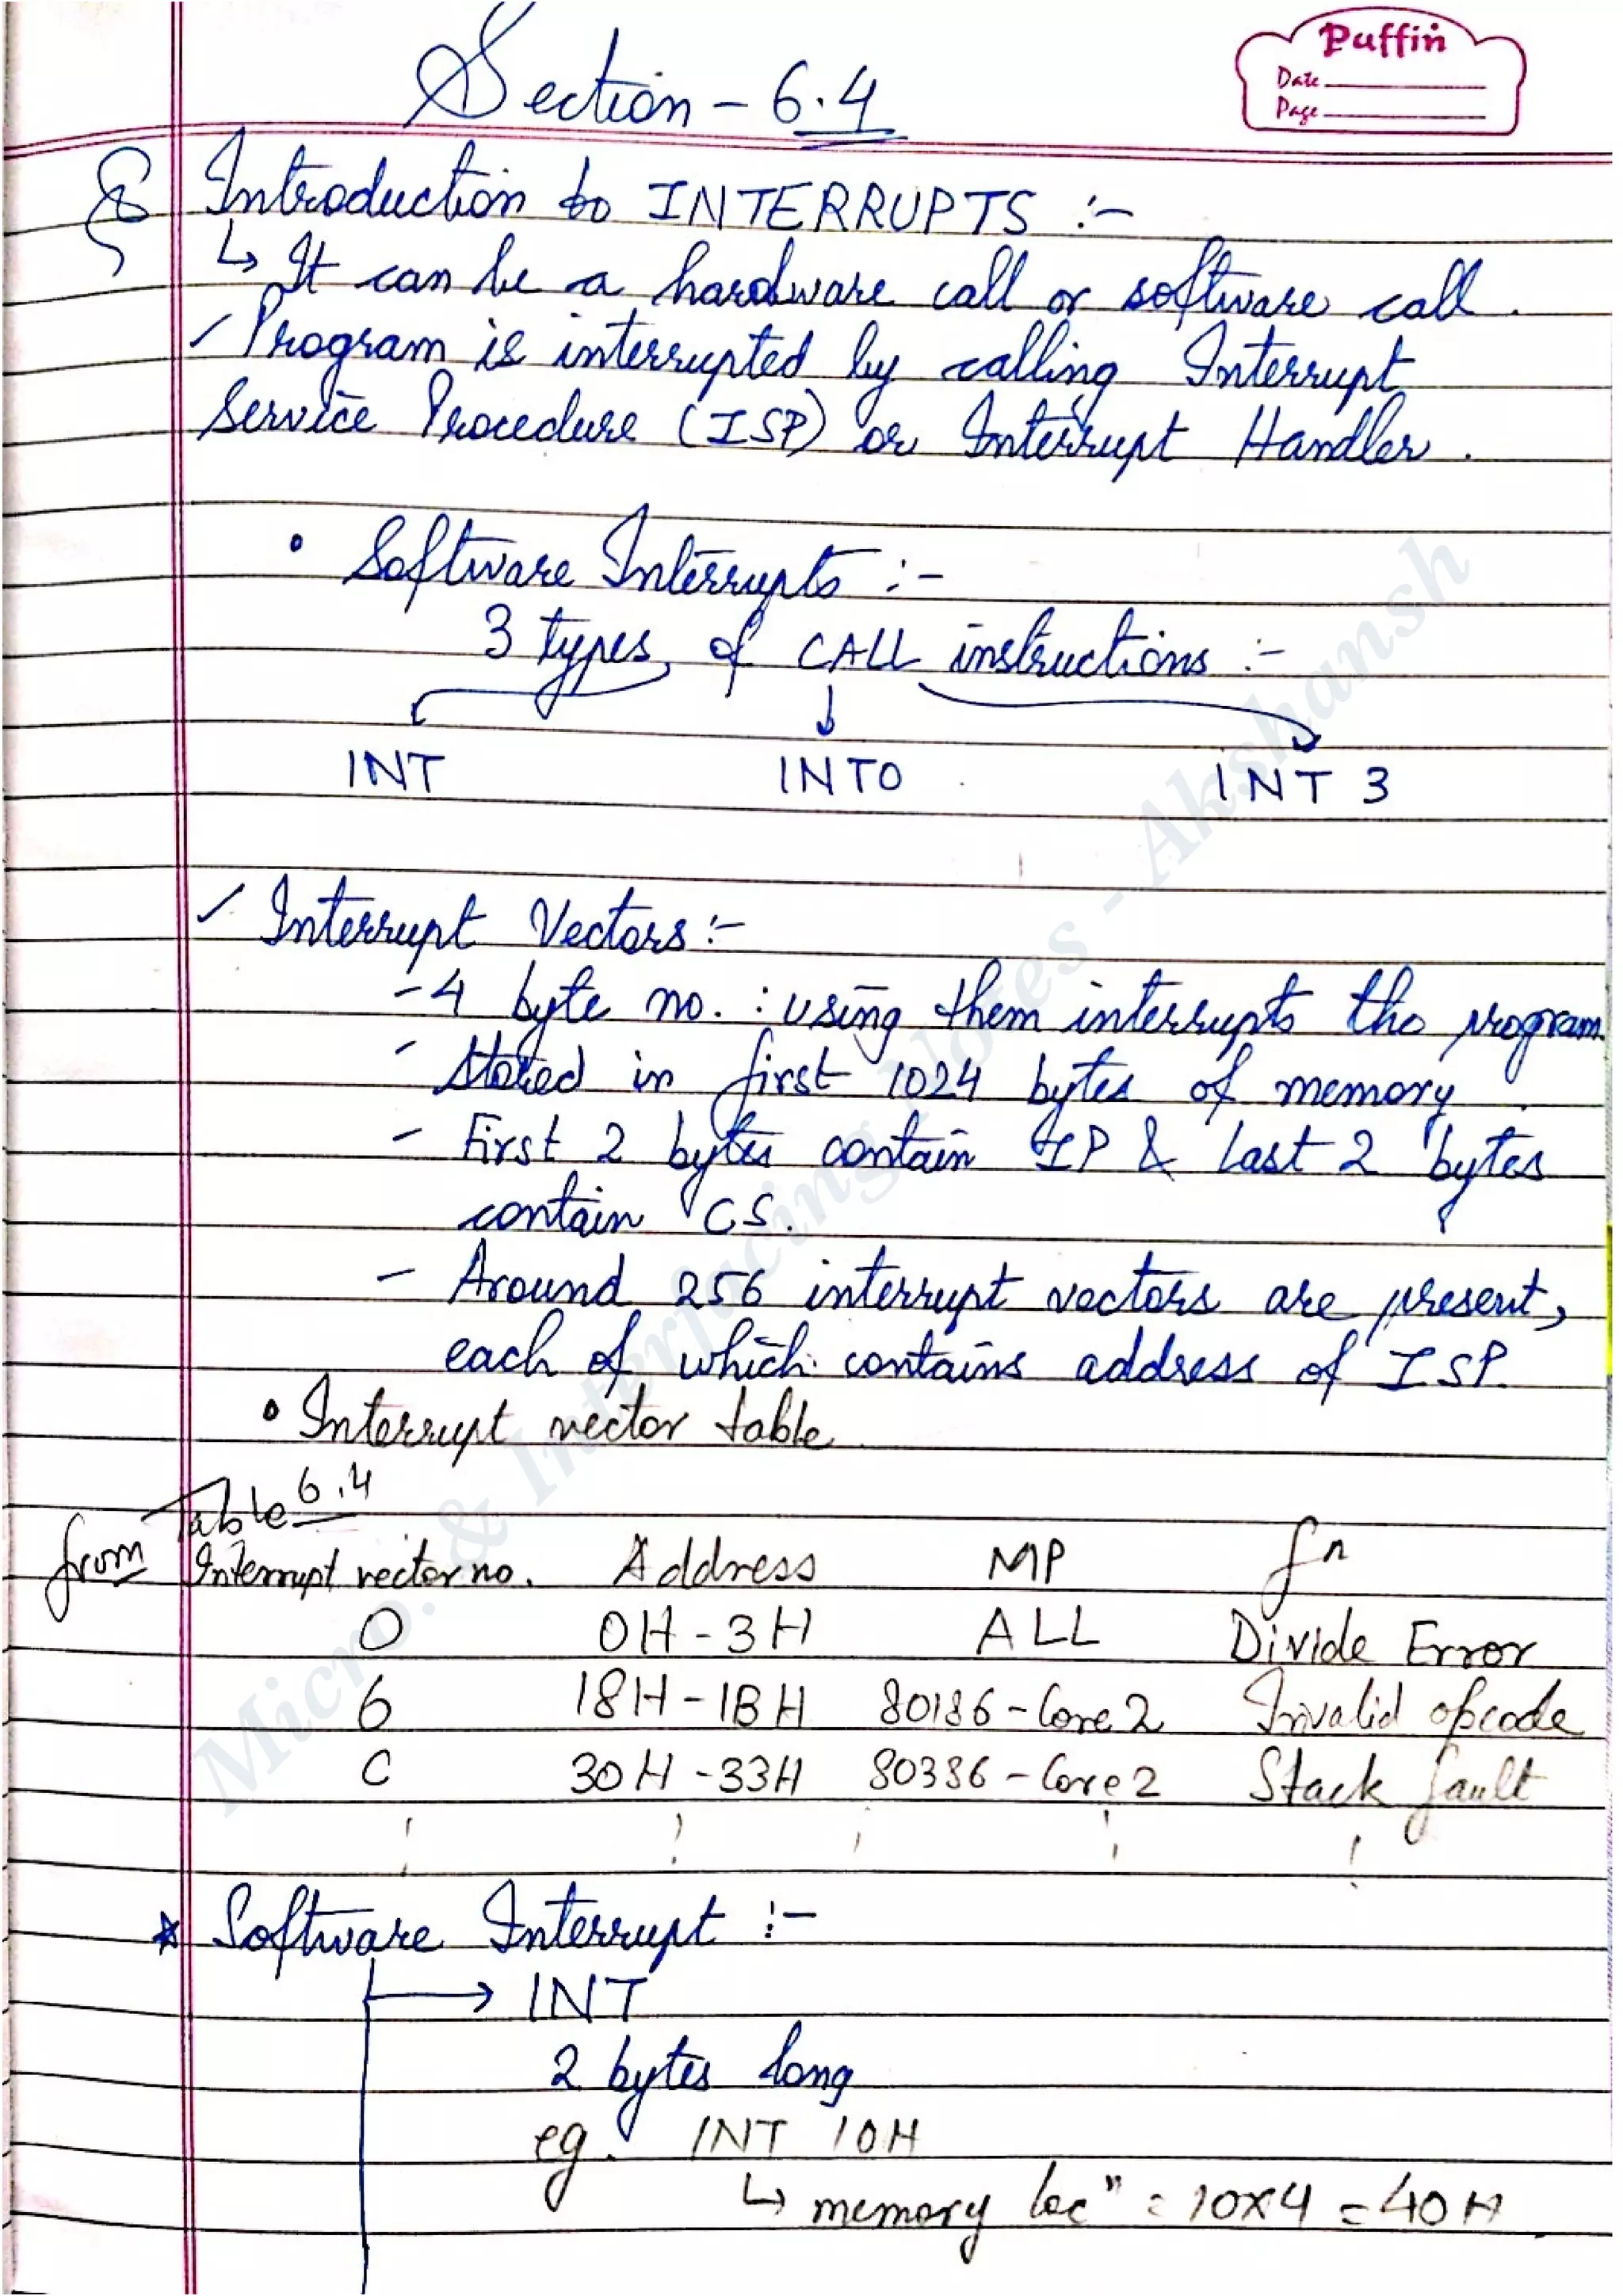 Puffin
Date
Page
Section - 6.4
§ Introduction to INTERRUPTS :-
↳ It can be a hardware call or software call.
✓ Program is interrupted by calling Interrupt
Service Procedure (ISP) or Interrupt Handler.
• Software Interrupts :-
3 types of CALL instructions :-
INT INTO INT 3
✓ Interrupt Vectors :-
- 4 byte no. : using them interrupts the program.
- Stored in first 1024 bytes of memory.
- First 2 bytes contain IP & Last 2 bytes
contain CS.
- Around 256 interrupt vectors are present,
each of which contains address of ISP.
• Interrupt vector table
from Table 6.4
Interrupt vector no. Address MP fn
0 0H - 3H ALL Divide Error
6 18H - 1BH 80186 - Core 2 Invalid opcode
C 30H - 33H 80386 - Core 2 Stack fault
★ Software Interrupt :-
→ INT
2 bytes long
eg. INT 10H
↳ memory locⁿ = 10x4 = 40H.
Micro. & Interfacing Notes - Akshansh